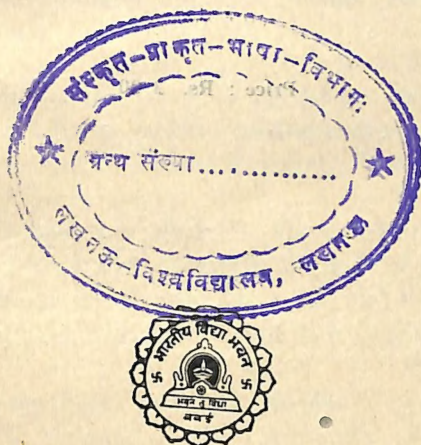 संस्कृत-प्राकृत-भाषा-विभागः
Price : Rs.
ग्रन्थ संख्या..............
लखनऊ-विश्वविद्यालय, लखनऊ
भारतीय विद्या भवन
बंबई